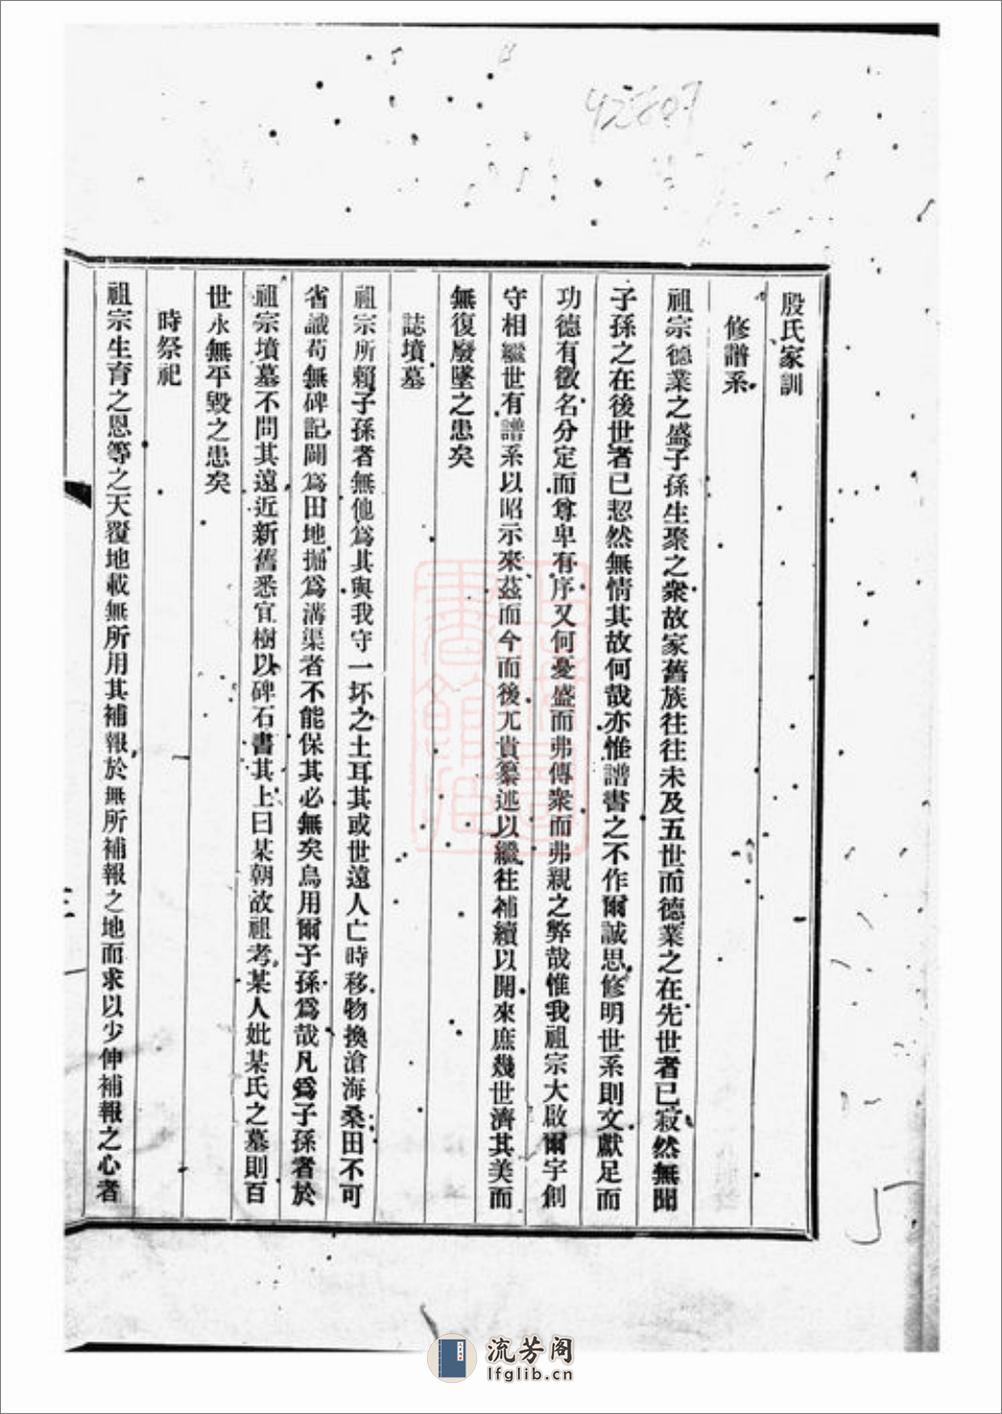 42687
殷氏家訓
修譜系
祖宗德業之盛子孫生聚之衆故家舊族往往未及五世而德業之在先世者已寂然無聞
子孫之在後世者已恝然無情其故何哉亦惟譜書之不作爾誠思修明世系則文獻足而
功德有徵名分定而尊卑有序又何憂盛而弗傳衆而弗親之弊哉惟我祖宗大啟爾宇創
守相繼世有譜系以昭示來茲而今而後尤貴纂述以繼往補續以開來庶幾世濟其美而
無復廢墜之患矣
誌墳墓
祖宗所賴子孫者無他爲其與我守一坏之土耳其或世遠人亡時移物換滄海桑田不可
省識苟無碑記闢爲田地掘爲溝渠者不能保其必無矣烏用爾子孫爲哉凡爲子孫者於
祖宗墳墓不問其遠近新舊悉宜樹以碑石書其上曰某朝故祖考某人妣某氏之墓則百
世永無平毀之患矣
時祭祀
祖宗生育之恩等之天覆地載無所用其補報於無所補報之地而求以少伸補報之心者
流芳阁
lfglib.cn